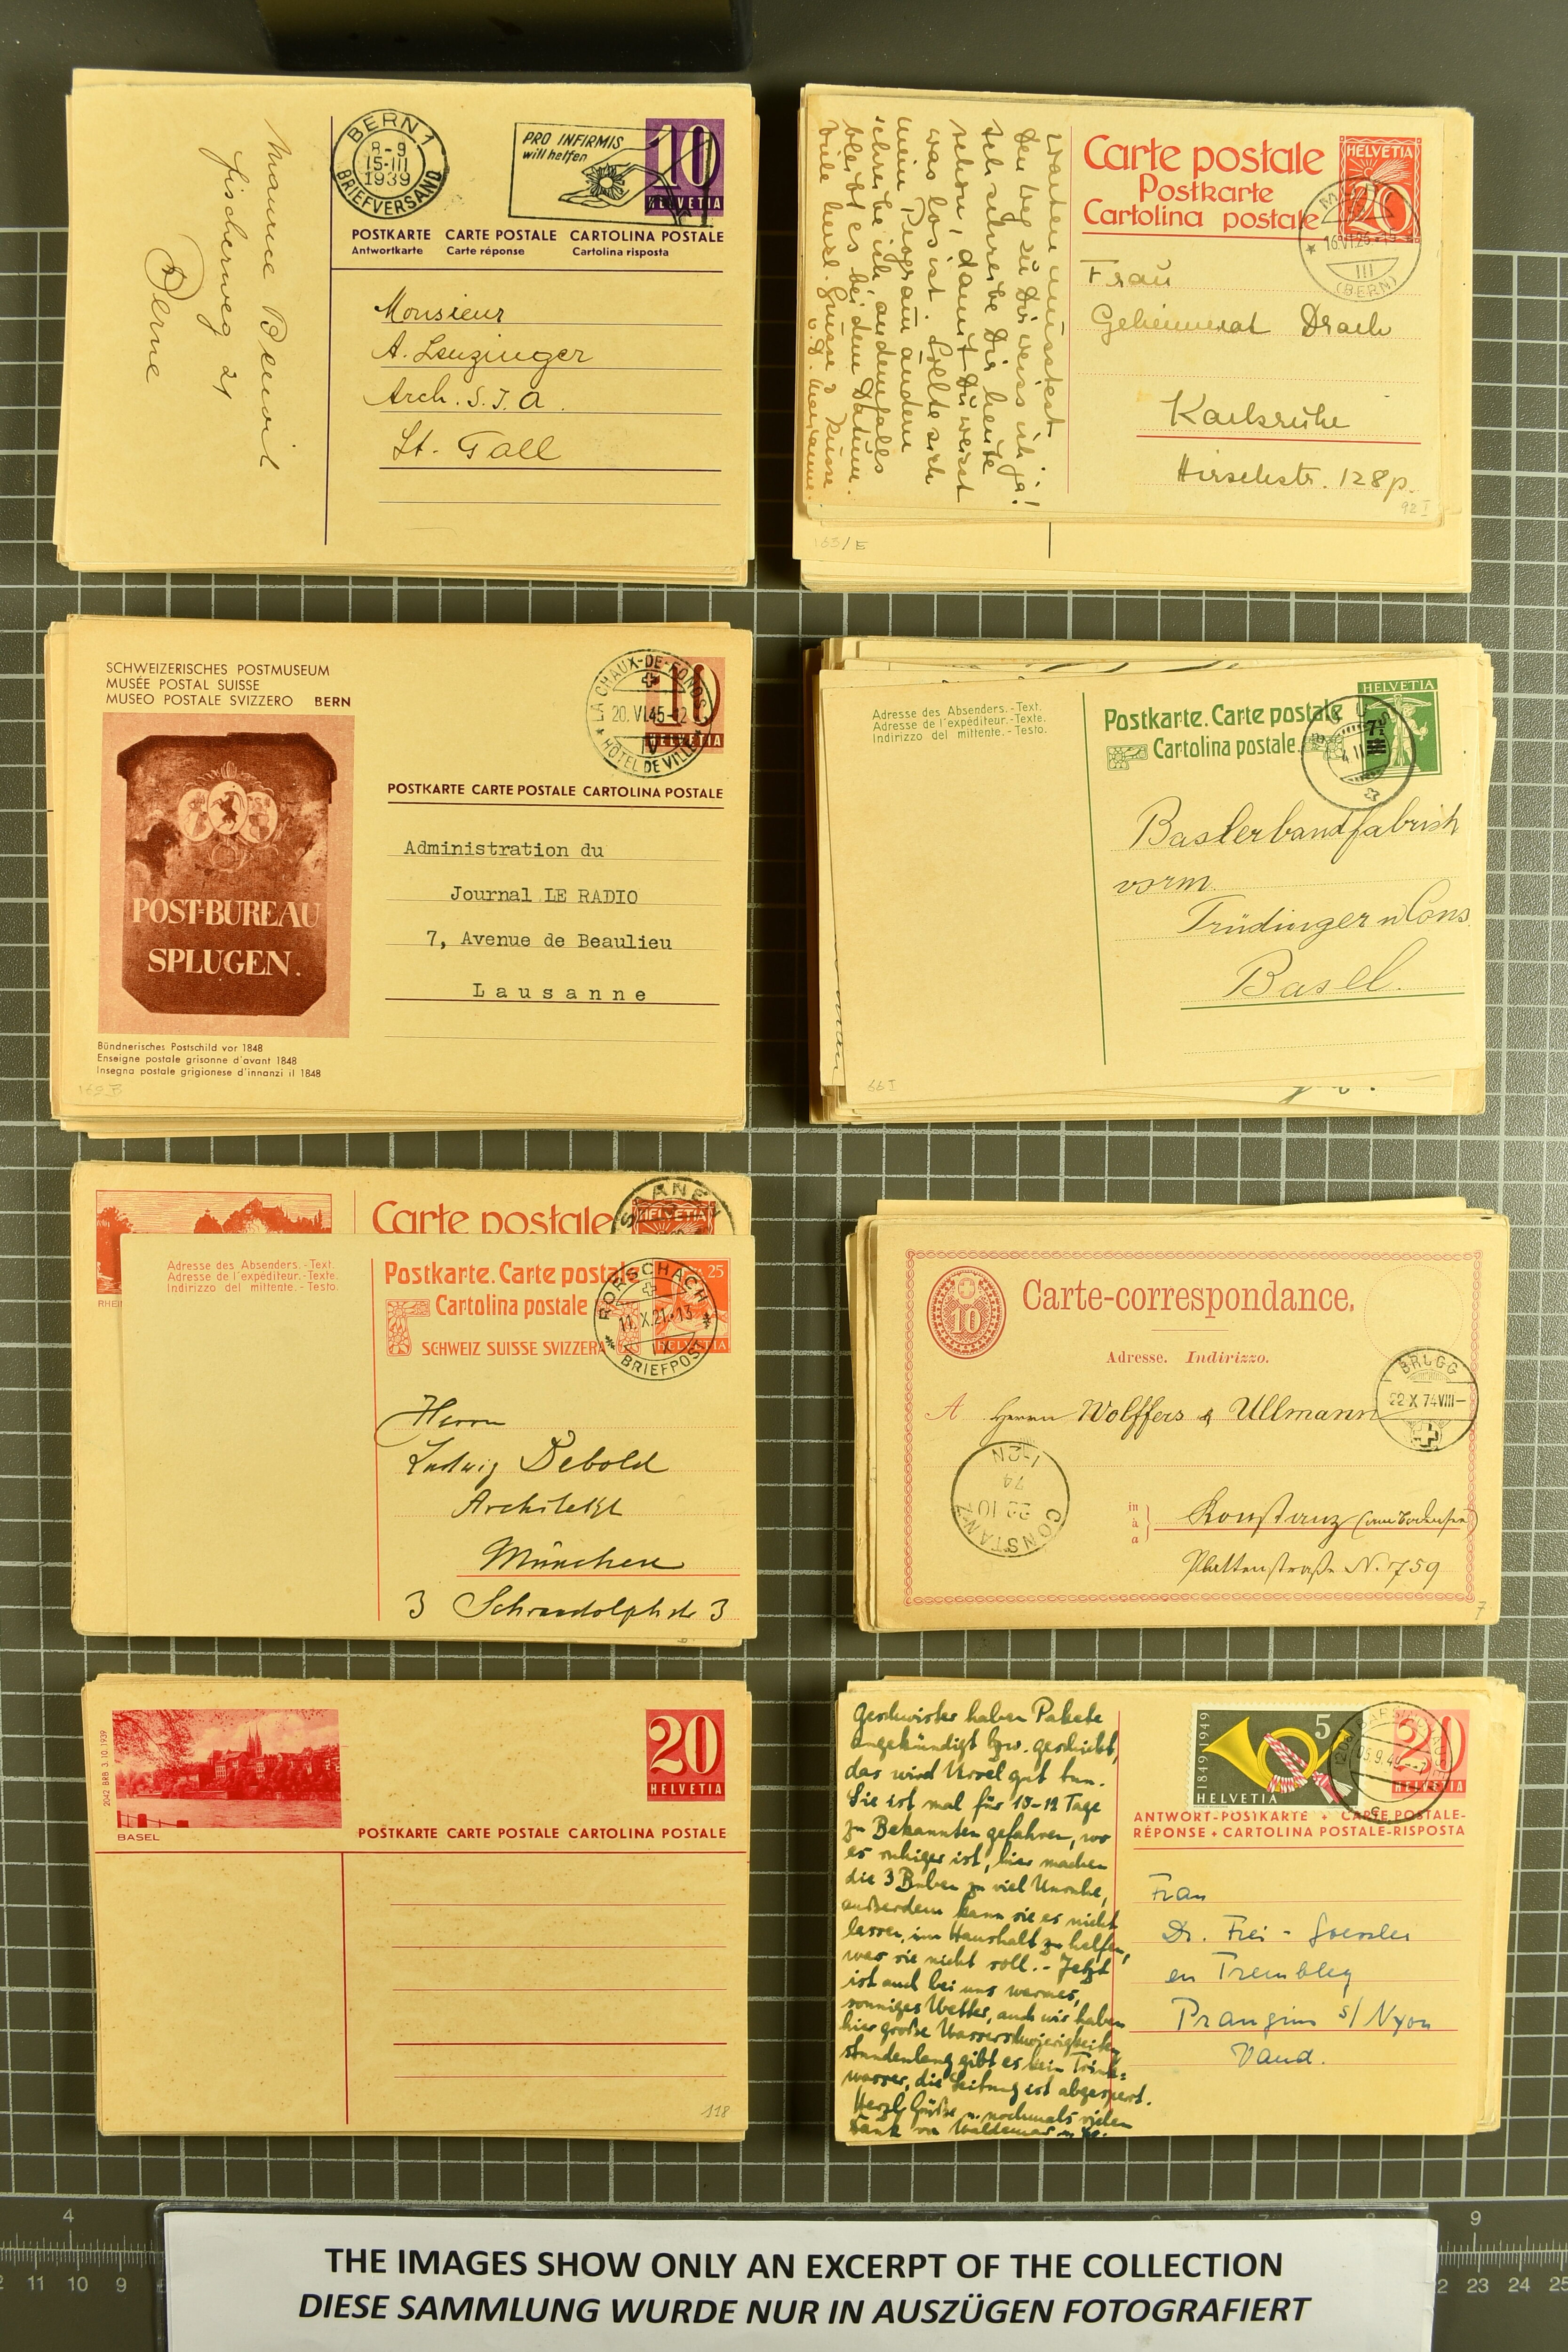 BERN 1
8-9
15-III
1939
BRIEFVERSAND
PRO INFIRMIS
will helfen
10
HELVETIA
POSTKARTE CARTE POSTALE CARTOLINA POSTALE
Antwortkarte Carte réponse Cartolina risposta
Maurice
Fischerweg 21
Berne
Monsieur
A. Leuzinger
Arch. S.I.A.
St. Gall
Carte postale
Postkarte
Cartolina postale
HELVETIA
20
III
(BERN)
warten müsstest
den Weg zu Dir weiss ich ja!
Ich schreibe Dir heute
schon, damit Du weisst
was los ist. Sollte sich
mein Program ändern
schreibe ich, andernfalls
bleibt es bei dem Datum.
Viele herzl. Grüsse & Küsse
v. d. Marianne.
Frau
Geheimrat Drach
Karlsruhe
Hirschstr. 128p.
92 I
163/E
SCHWEIZERISCHES POSTMUSEUM
MUSÉE POSTAL SUISSE
MUSEO POSTALE SVIZZERO BERN
POST-BUREAU
SPLUGEN.
Bündnerisches Postschild vor 1848
Enseigne postale grisonne d'avant 1848
Insegna postale grigionese d'innanzi il 1848
LA CHAUX-DE-FONDS
20. VI.45-12
IV
HÔTEL DE VILLE
10
HELVETIA
POSTKARTE CARTE POSTALE CARTOLINA POSTALE
Administration du
Journal LE RADIO
7, Avenue de Beaulieu
Lausanne
Adresse des Absenders.-Text.
Adresse de l'expéditeur.-Texte.
Indirizzo del mittente.-Testo.
Postkarte. Carte postale
Cartolina postale.
HELVETIA
Baslerbandfabrick
vorm
Trüdinger & Cons.
Basel.
66 I
Carte postale
HELVETIA
SAANEN
Adresse des Absenders.-Text.
Adresse de l'expéditeur.-Texte.
Indirizzo del mittente.-Testo.
Postkarte. Carte postale
Cartolina postale
SCHWEIZ SUISSE SVIZZERA
25
HELVETIA
RORSCHACH
11. X.21.-13
BRIEFPOST
Herrn
Ludwig Debold
Architekt
München
3 Schraudolphstr 3
10
Carte-correspondance.
Adresse. Indirizzo.
BRUGG
22 X 74 VIII-
A Herrn Wolffers & Ullmann
CONSTANZ
22 10
74
1-2N
in
à
a
Konstanz (am Bodensee)
Plattenstraße N. 759
7
2042 BRB 3.10.1939
BASEL
20
HELVETIA
POSTKARTE CARTE POSTALE CARTOLINA POSTALE
118
Geschwister haben Pakete
angekündigt bzw. geschickt,
das wird Ursel gut tun.
Sie ist mal für 10-12 Tage
zu Bekannten gefahren, wo
es ruhiger ist, hier machen
die 3 Buben zu viel Unruhe,
außerdem kann sie es nicht
lassen, im Haushalt zu helfen,
was sie nicht soll. - Jetzt
ist auch bei uns warmes,
sonniges Wetter, auch wir haben
hier große Wasserschwierigkeiten,
stundenlang gibt es kein Trink-
wasser, die Leitung ist abgesperrt.
Herzl. Grüße u. nochmals vielen
Dank von Waldemar
1849-1949
5
HELVETIA
20
HELVETIA
ANTWORT-POSTKARTE + CARTE POSTALE-
RÉPONSE + CARTOLINA POSTALE-RISPOSTA
Frau
Dr. Frei-
en Trembley
Prangins s/Nyon
Vaud.
4 9
11 10 9 23 24 25
THE IMAGES SHOW ONLY AN EXCERPT OF THE COLLECTION
DIESE SAMMLUNG WURDE NUR IN AUSZÜGEN FOTOGRAFIERT